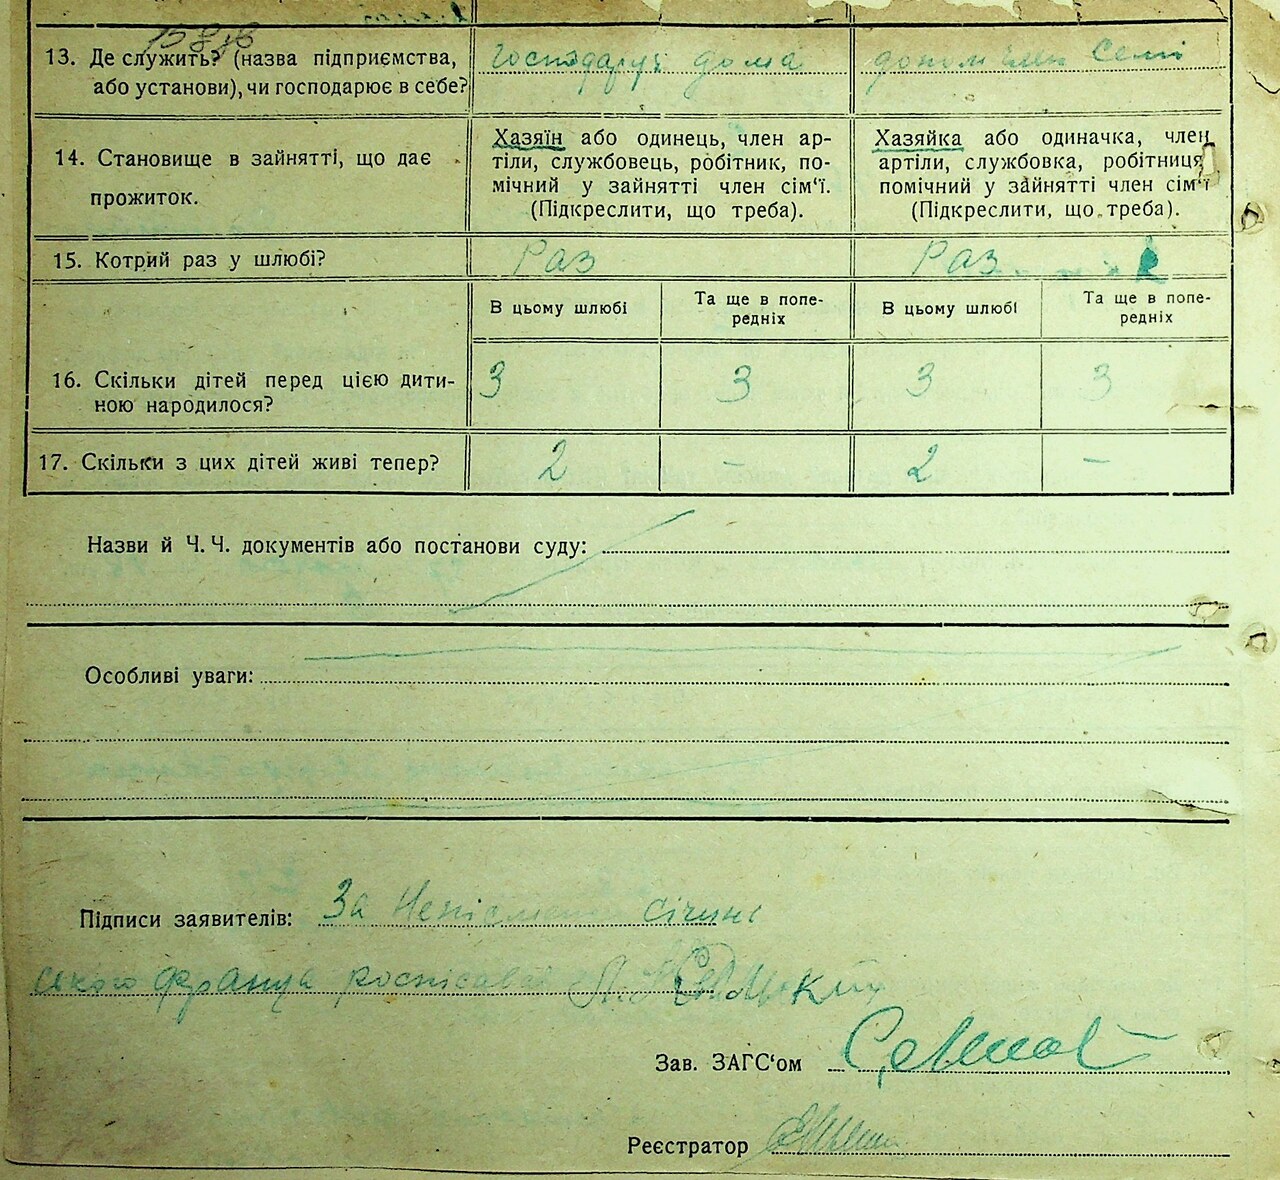 13. Де служить? (назва підприємства, або установи), чи господарює в себе?
господарує дома
член семі
14. Становище в зайнятті, що дає прожиток.
Хазяїн або одинець, член ар-
тіли, службовець, робітник, по-
мічний у зайнятті член сім'ї.
(Підкреслити, що треба).
Хазяйка або одиначка, член
артіли, службовка, робітниця
помічний у зайнятті член сім'ї
(Підкреслити, що треба).
15. Котрий раз у шлюбі?
Раз
Раз
В цьому шлюбі
Та ще в попе-
редніх
В цьому шлюбі
Та ще в попе-
редніх
16. Скільки дітей перед цією дити-
ною народилося?
3
3
3
3
17. Скільки з цих дітей живі тепер?
2
–
2
–
Назви й Ч. Ч. документів або постанови суду:
Особливі уваги:
Підписи заявителів: За
Зав. ЗАГС'ом
Реєстратор